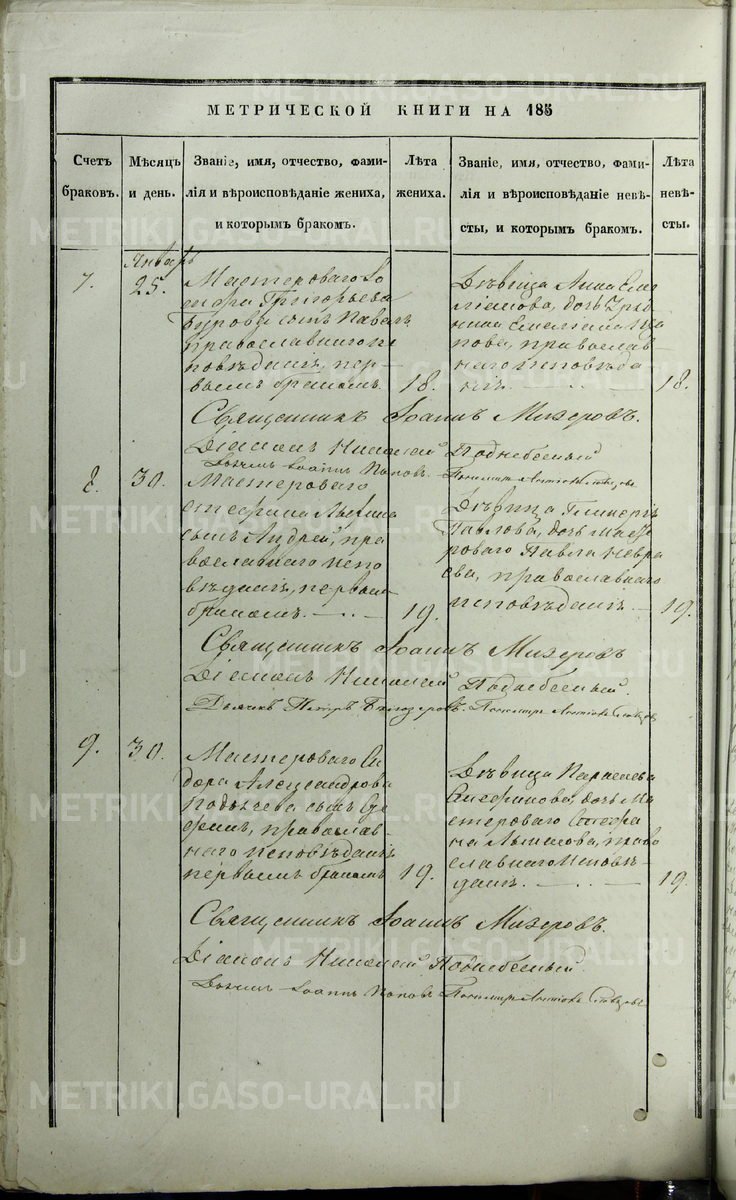 МЕТРИЧЕСКОЙ КНИГИ НА 185
Счетъ браковъ.
Мѣсяцъ и день.
Званіе, имя, отчество, фами-
лія и вѣроисповѣданіе жениха,
и которымъ бракомъ.
Лѣта жениха.
Званіе, имя, отчество, фами-
лія и вѣроисповѣданіе невѣ-
сты, и которымъ бракомъ.
Лѣта невѣ-
сты.
Январь
7.
25.
Мастероваго
Григорьева
сынъ Павелъ
православнаго ис
повѣданія, пер-
вымъ бракомъ.
18.
Дѣвица Анна Еме
ліанова, дочь
Емеліана
нова, православ-
наго исповѣда
нія.
18.
Священникъ Іоаннъ Мизеровъ.
Діаконъ Николай Поднебесный
Іоаннъ Поповъ. Пономарь
8.
30.
Мастероваго
Стефана
сынъ Андрей, пра
вославнаго испо
вѣданія, первымъ
бракомъ.
19.
Дѣвица Гликерія
Павлова, дочь масте
роваго Павла
православнаго
исповѣданія.
19.
Священникъ Іоаннъ Мизеровъ
Діаконъ Николай Поднебесный.
Дьячекъ Петръ Бѣлозеровъ. Пономарь
9.
30.
Мастероваго Си
дора Александрова
сынъ
православ-
наго исповѣданія
первымъ бракомъ
19.
Дѣвица Параскева
Стефанова, дочь ма
стероваго Стефа
на право
славнаго исповѣ-
данія.
19.
Священникъ Іоаннъ Мизеровъ.
Діаконъ Николай Поднебесный.
Іоаннъ Поповъ Пономарь
METRIKI.GASO-URAL.RU